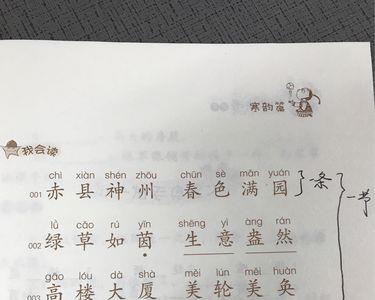 寒韵篇
我会读
chì xiàn shén zhōu chūn sè mǎn yuán
001 赤县神州 春色满园 一条 一节
lǜ cǎo rú yīn shēng yì àng rán
002 绿草如茵 生意盎然
gāo lóu dà shà měi lún měi huàn
003 高楼大厦 美轮美奂